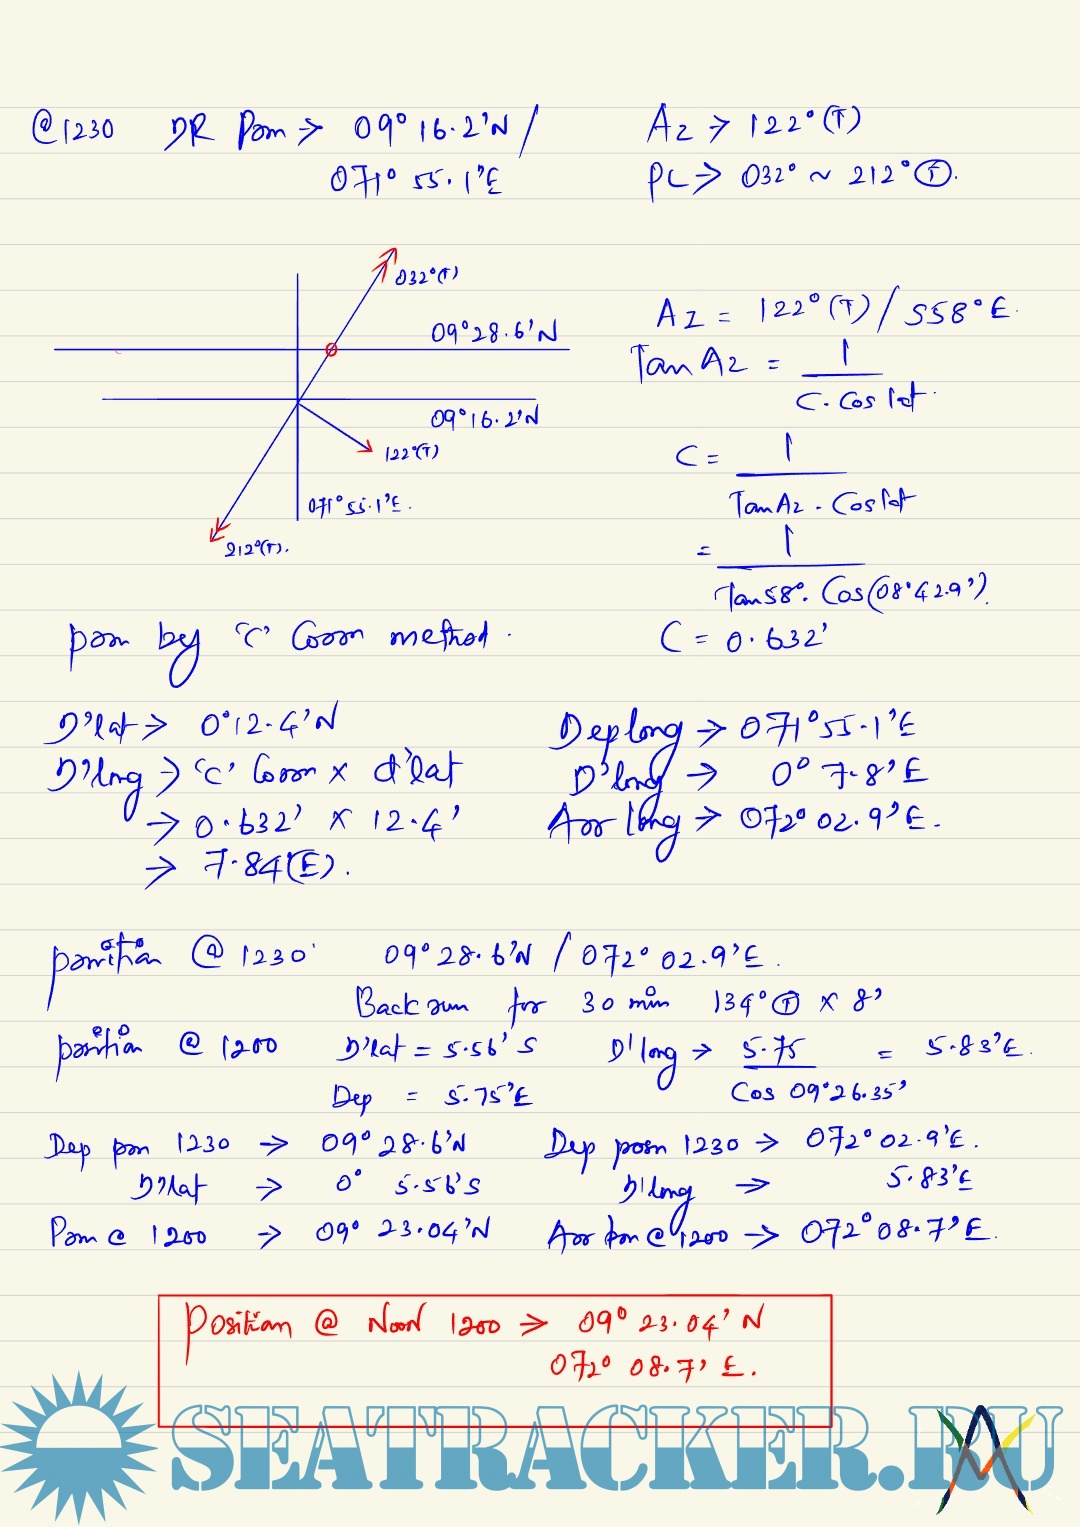 @1230 DR Posn → 09° 16.2'N / 071° 55.1'E
AZ → 122° (T)
PL → 032° ~ 212° (T).
032°(T)
09°28.6'N
09°16.2'N
122°(T)
071° 55.1'E.
212°(T).
AZ = 122° (T) / S58°E.
Tan AZ = 1 / C. Cos lat.
C = 1 / Tan AZ . Cos lat
= 1 / Tan 58°. Cos (08°42.9').
C = 0.632'
posn by 'C' Corrn method.
D'lat → 0°12.4'N
D'lng → 'C' Corrn x d'lat
→ 0.632' x 12.4'
→ 7.84(E).
Dep long → 071° 55.1'E
D'long → 0° 7.8'E
Arr long → 072° 02.9'E.
position @ 1230 09° 28.6'N / 072° 02.9'E.
Back run for 30 min 134° (T) x 8'
position @ 1200 D'lat = 5.56' S D'long → 5.75 / Cos 09°26.35' = 5.83'E.
Dep = 5.75'E
Dep posn 1230 → 09° 28.6'N
D'lat → 0° 5.56'S
Posn @ 1200 → 09° 23.04'N
Dep posn 1230 → 072° 02.9'E.
D'long → 5.83'E
Arr posn @ 1200 → 072° 08.7'E.
Position @ Noon 1200 → 09° 23.04' N
072° 08.7' E.
SEATRACKER.RU